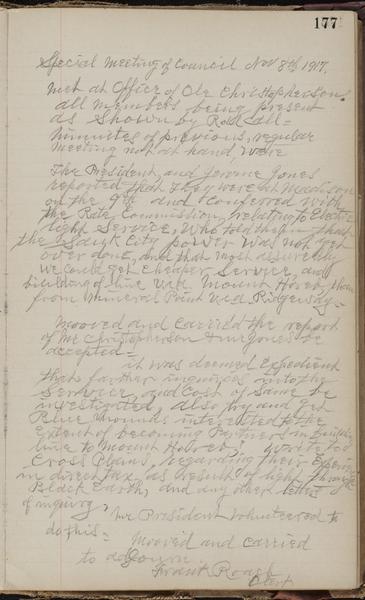 177
Special Meeting of Council Nov 8th 1917.
met at Office of Ole Christopherson
all members being present
as Shown by Roll call =
Minnites of previous, regular
Meeting not at hand, were
The President, and Jerome Jones
reported that they were at Madison
on the 9th and Conferred with
the Rate Commission, relating to Electric
light Service, Who told them that
the Sauk City power was not yet
over done, and that most assuredly
we could get cheaper Service, and
building of line via Mount Horeb, than
from Mineral Point via Ridgeway =
Mooved and carried the report
of Mr Christopherson & Mr Jones be
accepted =
it was deemed Expedient
that farther inquiries into the
Service and Cost of Same be
investigated, also try and get
Blue Mounds interested to the
Extent of becoming Partners in Building
line to Mount Horeb - write to
Cross Plains, regarding their Experience
in direct tax, as result of light through
Black Earth, and any other
of inquiry,
The President Volunteered to
do this =
Mooved and carried
to adjourn
Frank Roach
Clerk